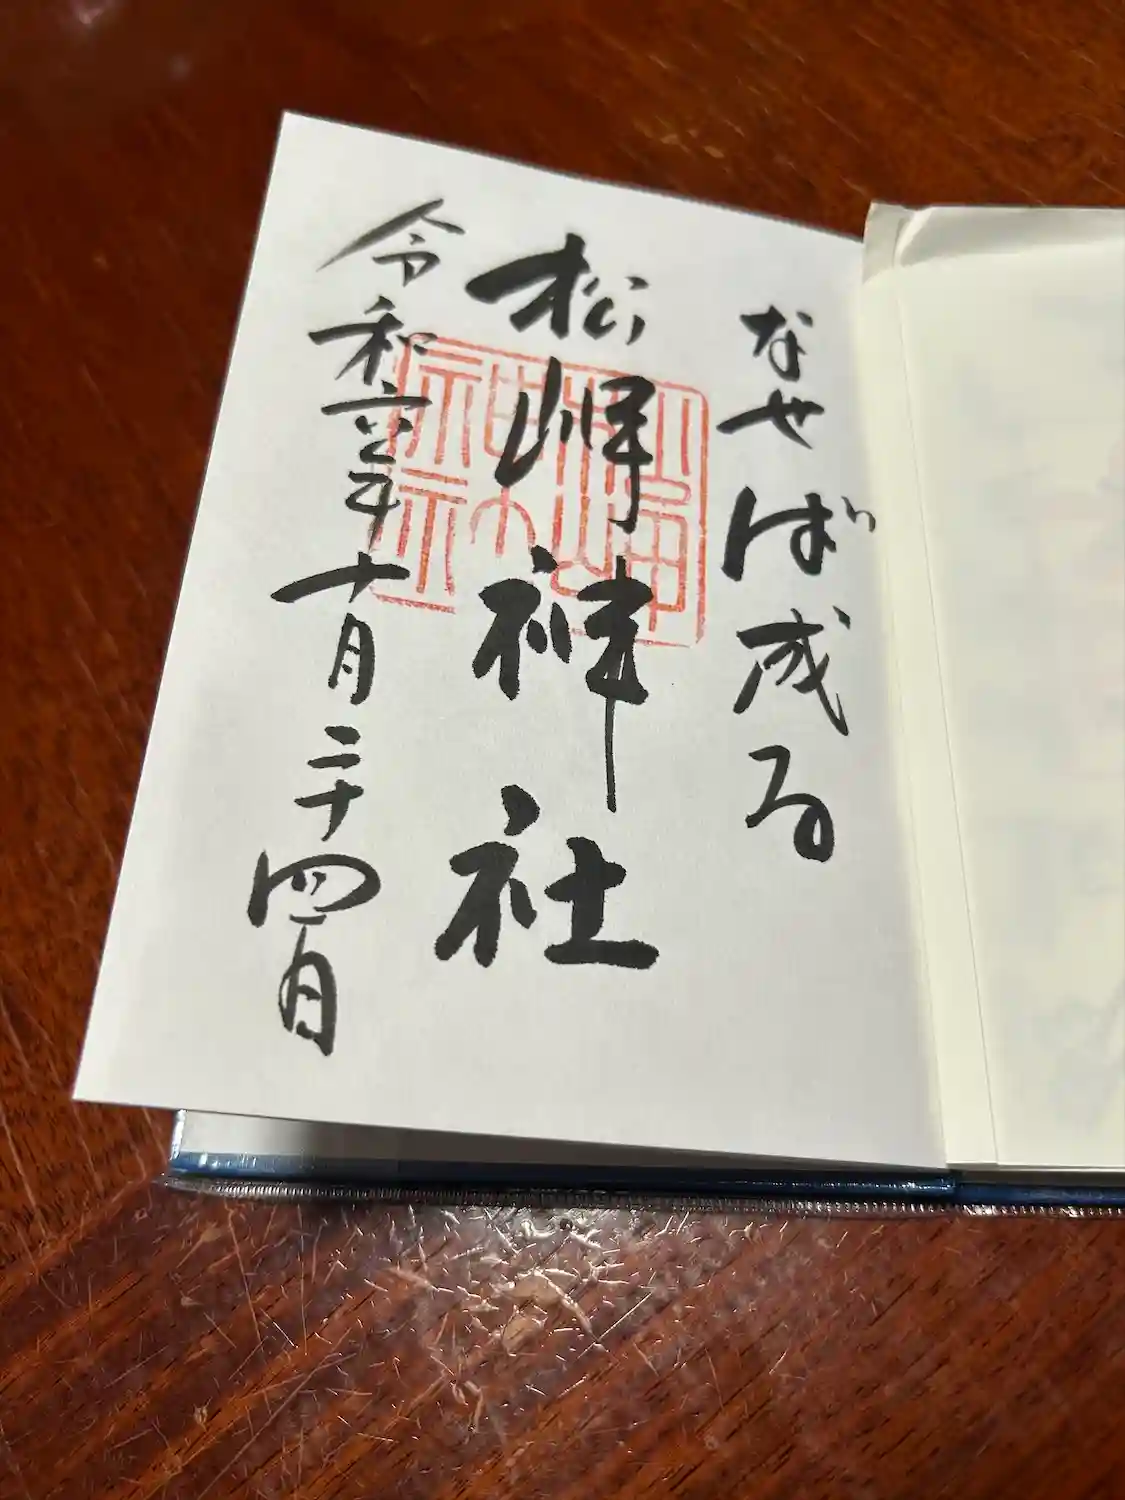 なせば成る
松岬神社
松岬
神社
令和六年十月二十四日